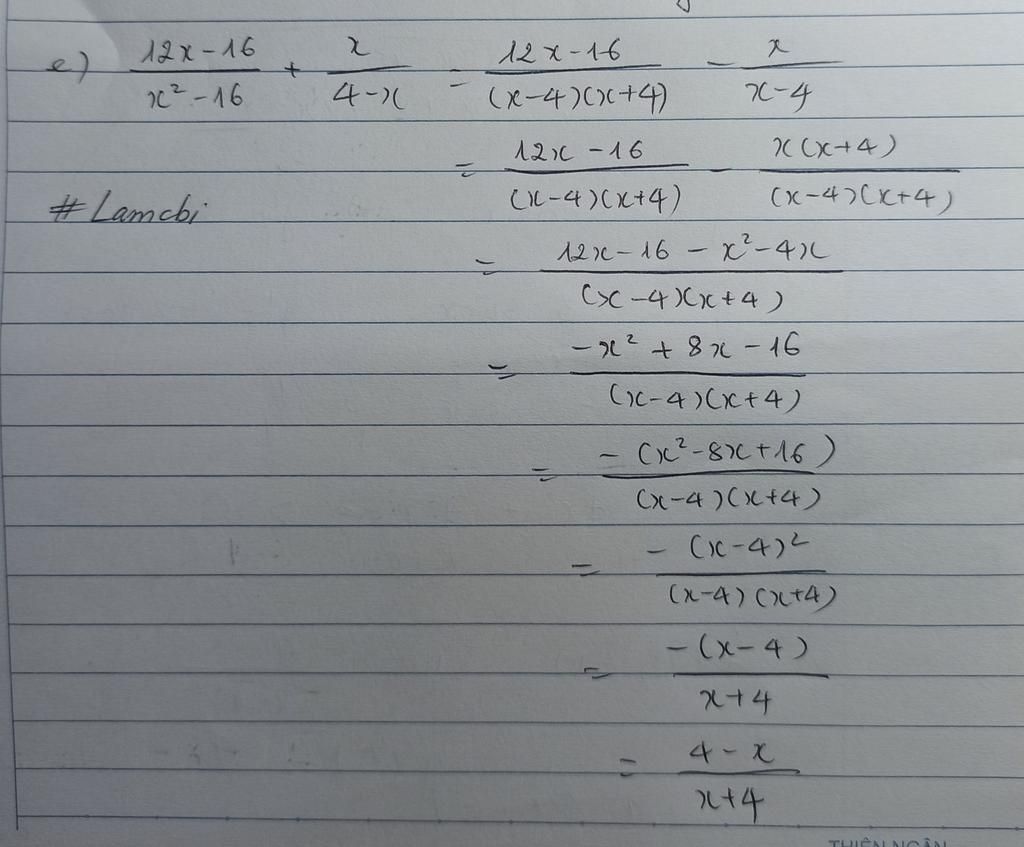 e) (12x-16)/(x²-16) + x/(4-x) = (12x-16)/((x-4)(x+4)) - x/(x-4)
= (12x-16)/((x-4)(x+4)) - x(x+4)/((x-4)(x+4))
#Lamcbi
= (12x-16-x²-4x)/((x-4)(x+4))
= (-x²+8x-16)/((x-4)(x+4))
= -(x²-8x+16)/((x-4)(x+4))
= -(x-4)²/((x-4)(x+4))
= -(x-4)/(x+4)
= (4-x)/(x+4)
THIÊN NGÂN